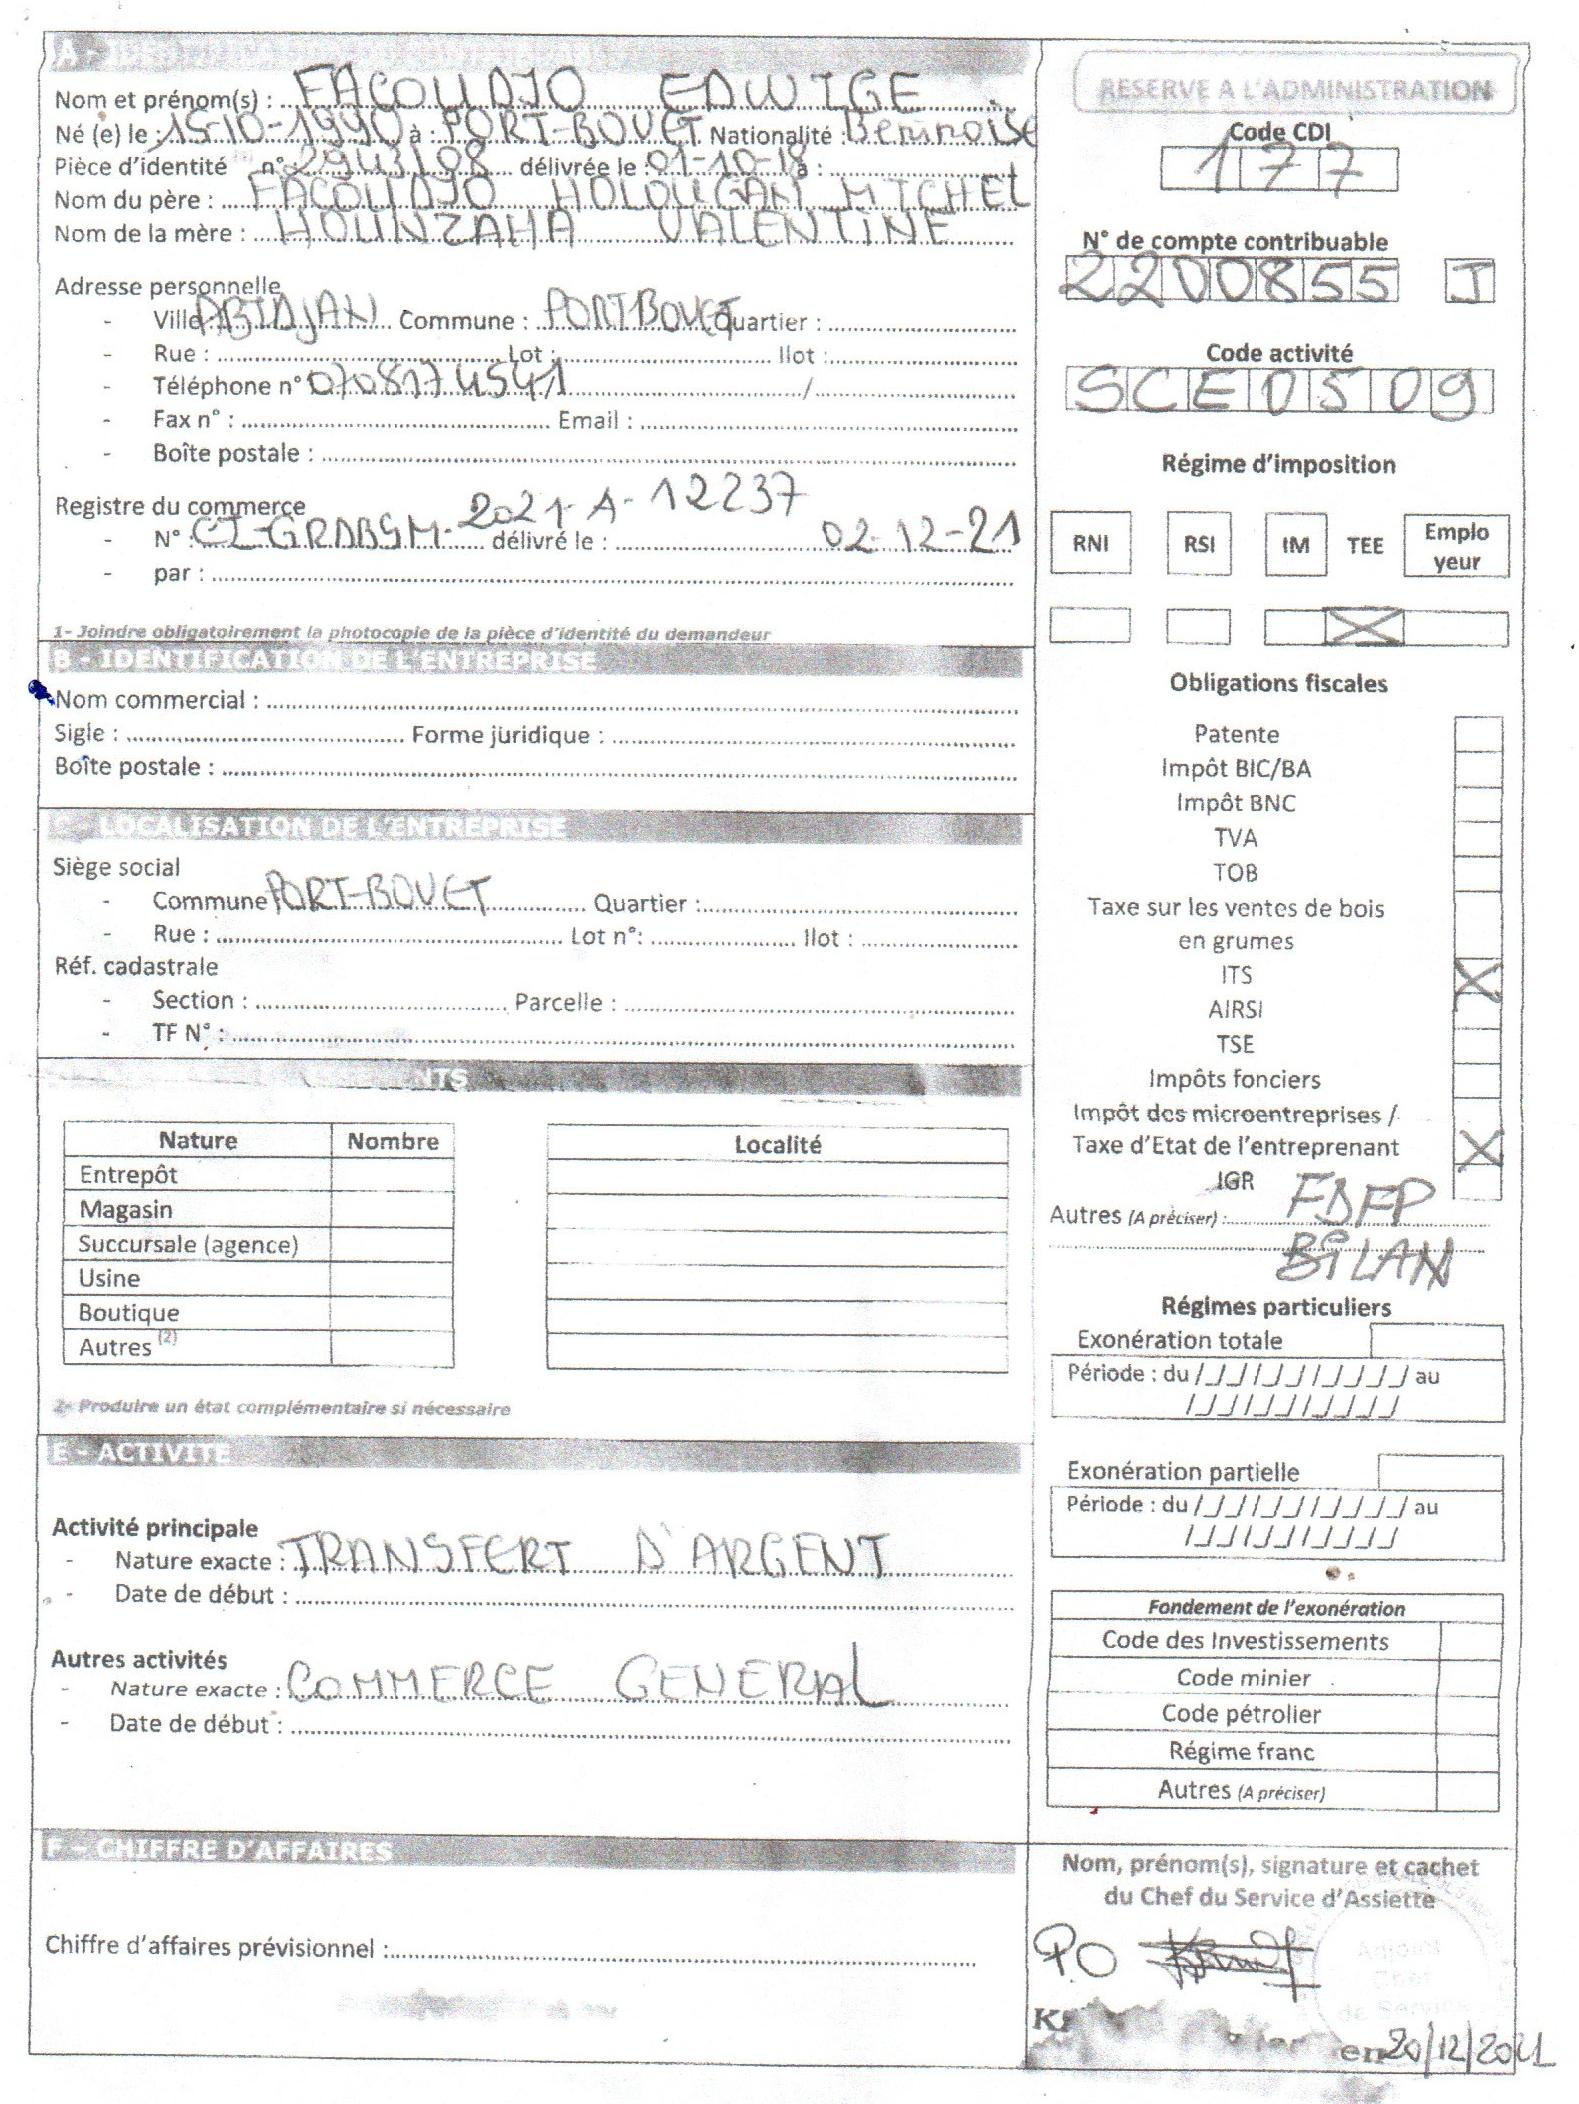 A - IDENTIFICATION DU CONTRIBUABLE
Nom et prénom(s) : FACOUDJO EDWIGE
Né (e) le : 15-10-1990 à : PORT-BOUET Nationalité : Béninoise
Pièce d'identité n° 2943108 délivrée le : 01-10-18 à :
Nom du père : FACOUDJO HOLOUGAN MICHEL
Nom de la mère : HOUNZAHA VALENTINE
Adresse personnelle
- Ville : ABIDJAN Commune : PORT BOUET Quartier :
- Rue : Lot : Ilot :
- Téléphone n° 0708174541 /
- Fax n° : Email :
- Boîte postale :
Registre du commerce
- N° : CI-GRDBSM-2021-A-12237 délivré le : 02-12-21
- par :
1- Joindre obligatoirement la photocopie de la pièce d'identité du demandeur
B - IDENTIFICATION DE L'ENTREPRISE
Nom commercial :
Sigle : Forme juridique :
Boîte postale :
C - LOCALISATION DE L'ENTREPRISE
Siège social
- Commune PORT-BOUET Quartier :
- Rue : Lot n°: Ilot :
Réf. cadastrale
- Section : Parcelle :
- TF N° :
NTS
Nature Nombre Localité
Entrepôt
Magasin
Succursale (agence)
Usine
Boutique
Autres (2)
2- Produire un état complémentaire si nécessaire
E - ACTIVITE
Activité principale
- Nature exacte : TRANSFERT D'ARGENT
- Date de début :
Autres activités
- Nature exacte : COMMERCE GENERAL
- Date de début :
F - CHIFFRE D'AFFAIRES
Chiffre d'affaires prévisionnel :
RESERVE A L'ADMINISTRATION
Code CDI
177
N° de compte contribuable
2200855 J
Code activité
SCE0509
Régime d'imposition
RNI RSI IM TEE Emplo
yeur
X
Obligations fiscales
Patente
Impôt BIC/BA
Impôt BNC
TVA
TOB
Taxe sur les ventes de bois
en grumes
ITS X
AIRSI
TSE
Impôts fonciers
Impôt des microentreprises /
Taxe d'Etat de l'entreprenant X
IGR
Autres (A préciser) : FDFP
BILAN
Régimes particuliers
Exonération totale
Période : du /_/_/ /_/_/ /_/_/_/_/ au
/_/_/ /_/_/ /_/_/_/_/
Exonération partielle
Période : du /_/_/ /_/_/ /_/_/_/_/ au
/_/_/ /_/_/ /_/_/_/_/
Fondement de l'exonération
Code des Investissements
Code minier
Code pétrolier
Régime franc
Autres (A préciser)
Nom, prénom(s), signature et cachet
du Chef du Service d'Assiette
P.O
Adjoint
Chef
de Service
en 20/12/2021